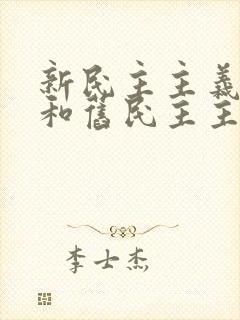 新民主主義
和舊民主主
李士杰